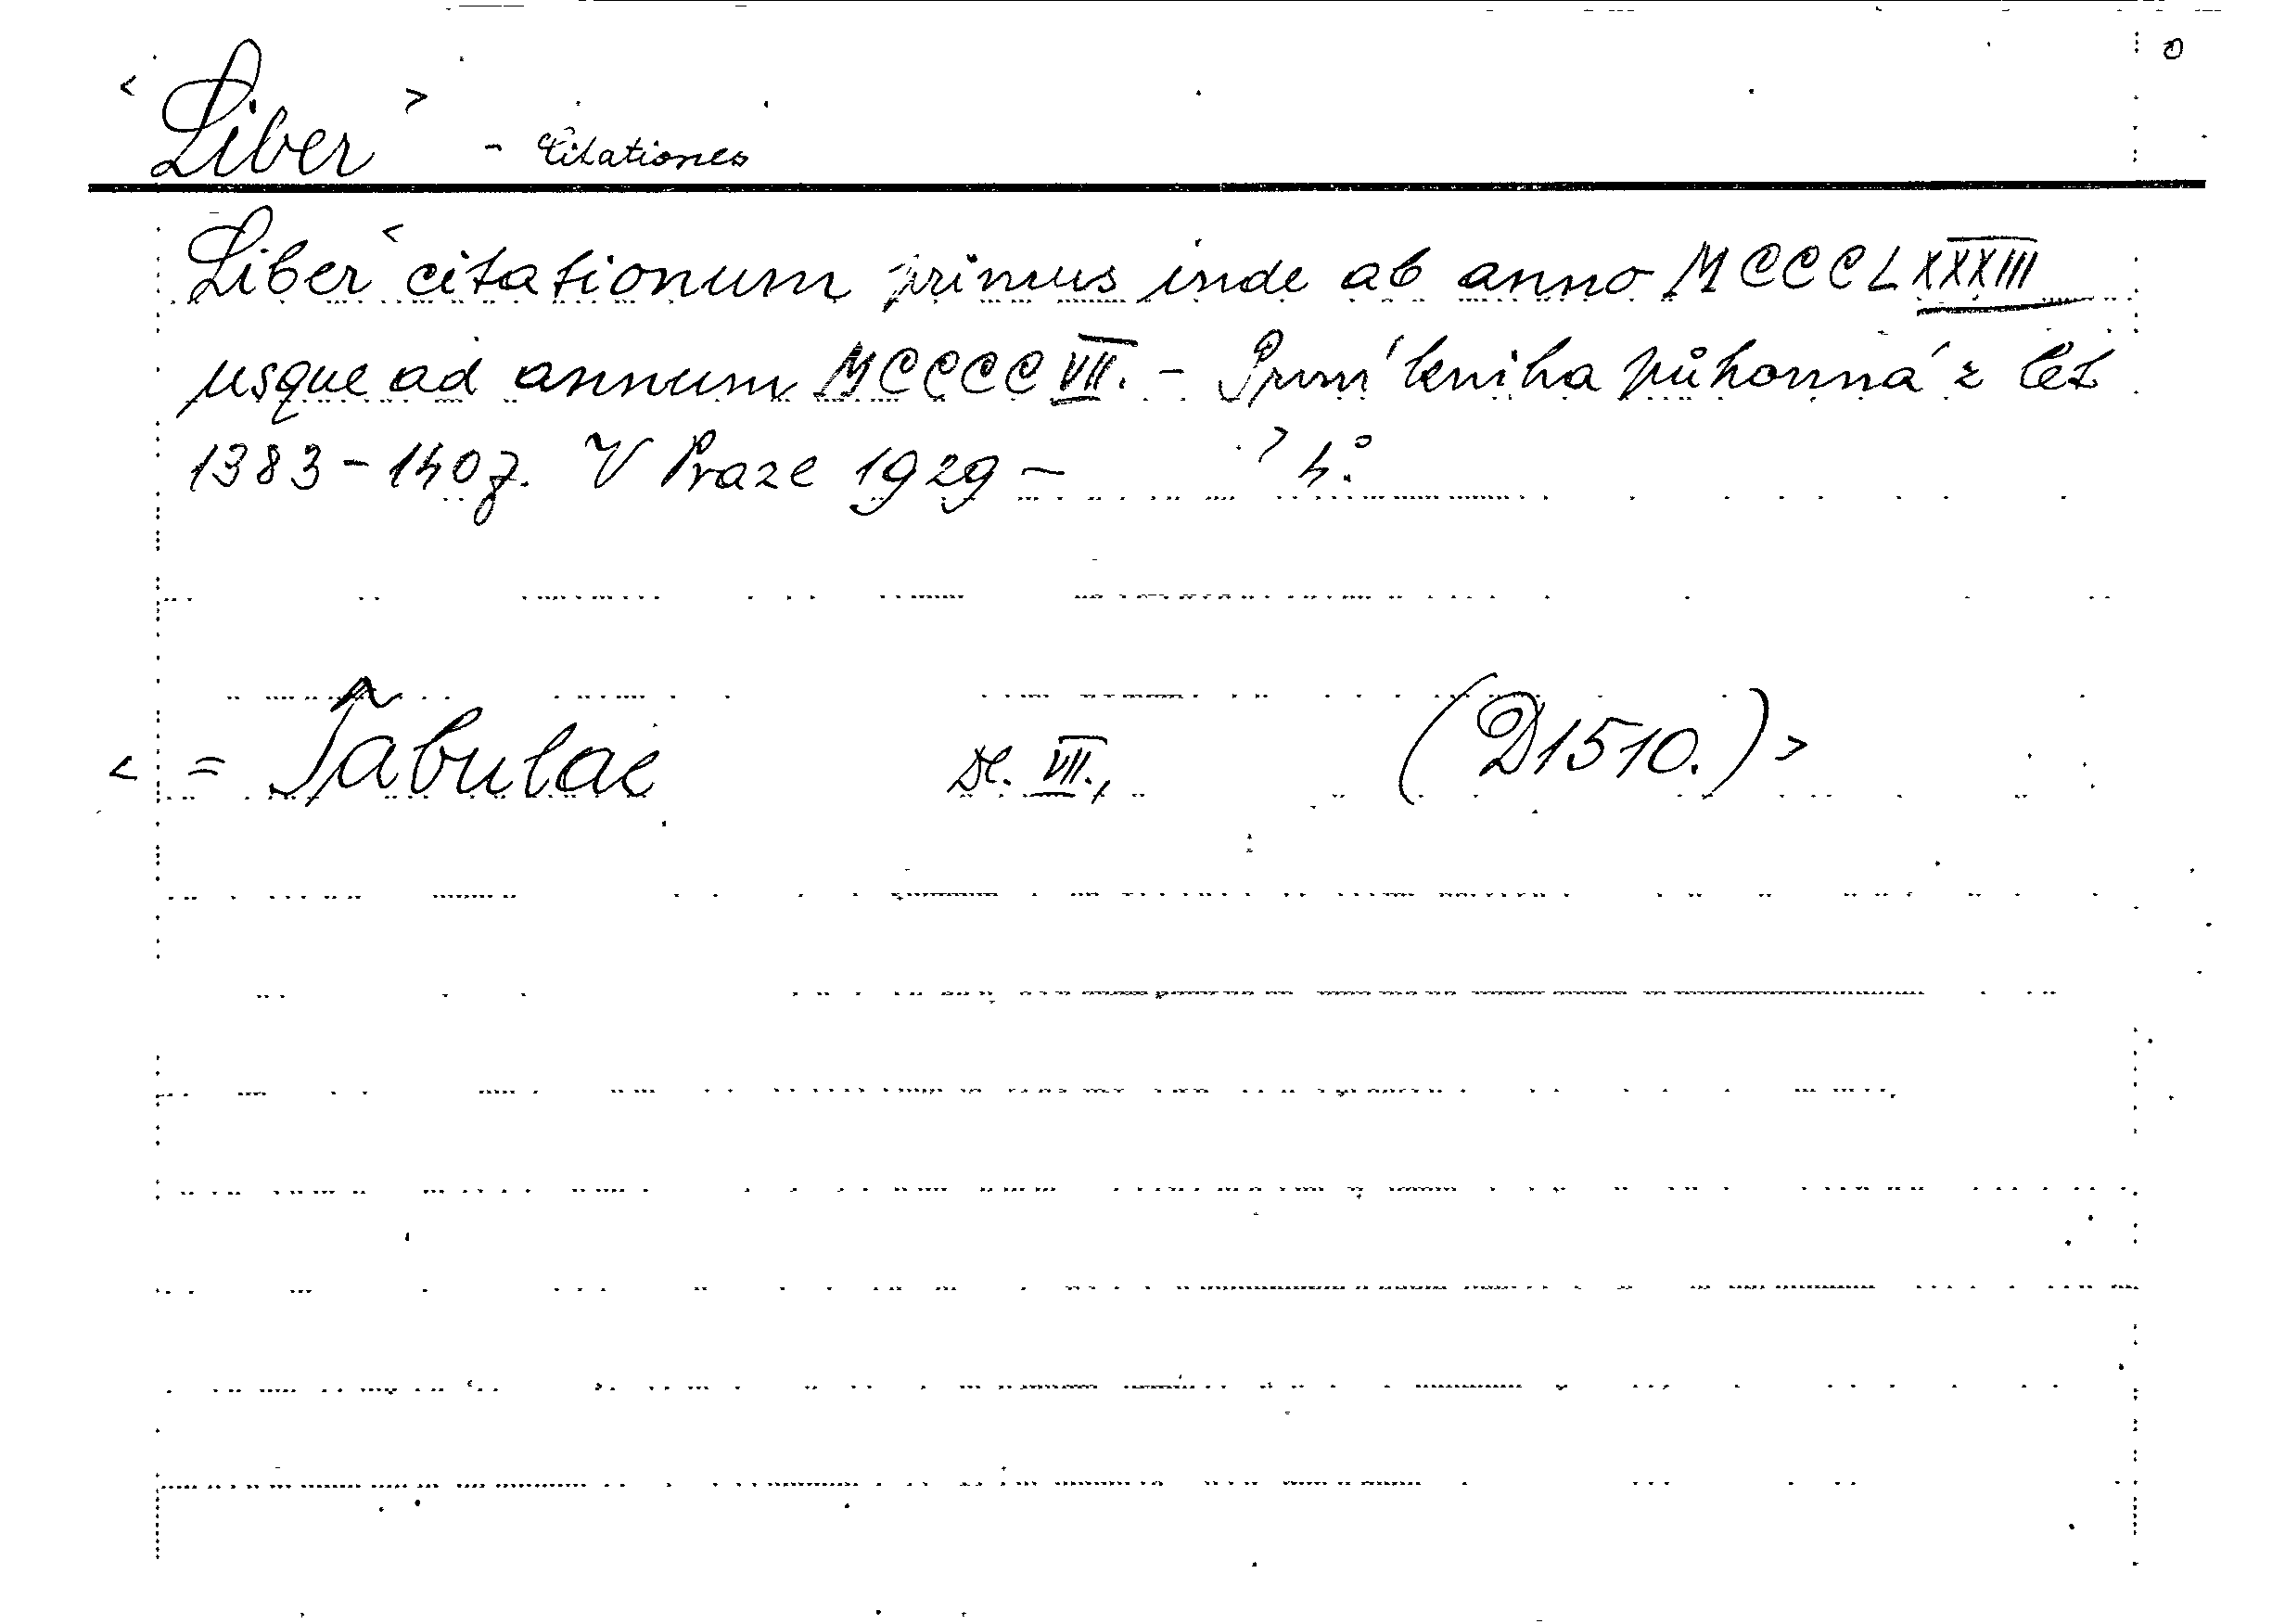 o
< Liber > - Citationes
Liber < citationum primus inde ab anno MCCCLXXXIII
usque ad annum MCCCCVII. - První kniha půhonná z let
1383-1407. V Praze 1929 - > 4°.
< = Tabulae Dl. VII., (D1510.) >